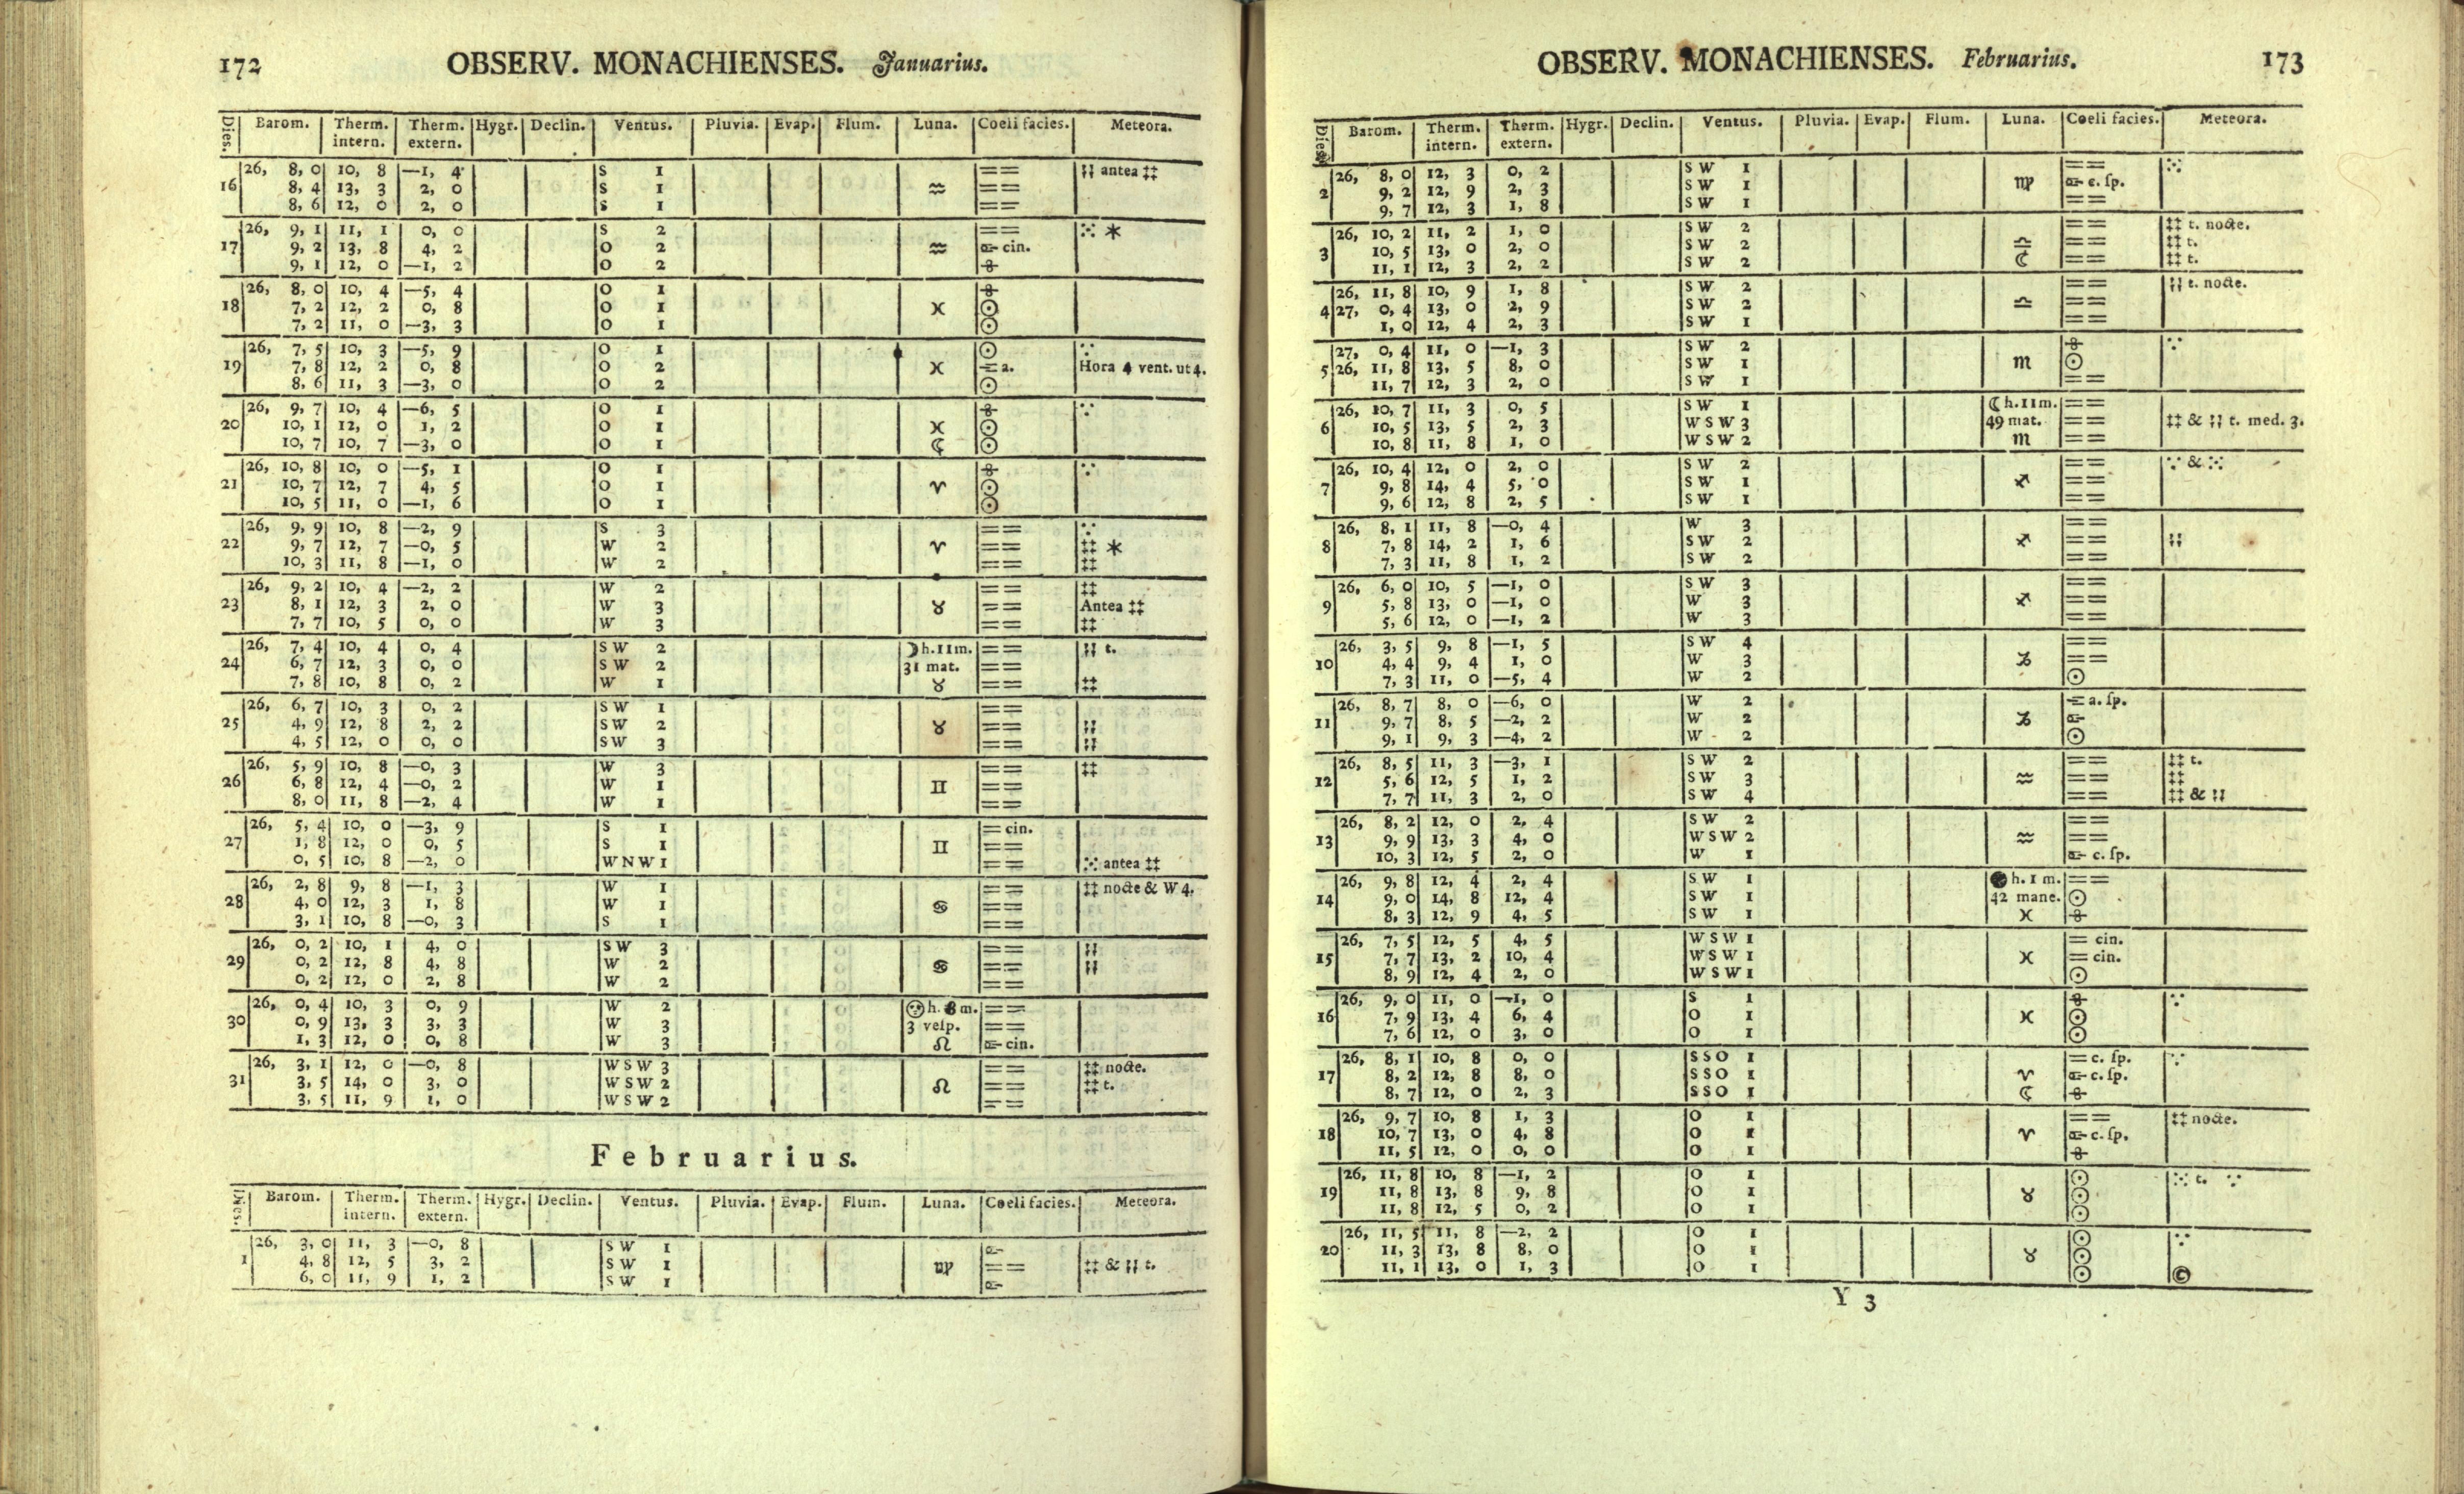 172 OBSERV. MONACHIENSES. Januarius.
Dies. Barom. Therm. intern. Therm. extern. Hygr. Declin. Ventus. Pluvia. Evap. Flum. Luna. Cœli facies. Meteora.
26, 8, 0 10, 8 —1, 4 S 1 == ¦¦ antea ‡‡
16 8, 4 13, 3 2, 0 S 1 ♒ ==
8, 6 12, 0 2, 0 S 1 ==
26, 9, 1 11, 1 0, 0 S 2 == ⁙ *
17 9, 2 13, 8 4, 2 O 2 ♒ cin.
9, 1 12, 0 —1, 2 O 2
26, 8, 0 10, 4 —5, 4 O 1
18 7, 2 12, 2 0, 8 O 1 ♓ ☉
7, 2 11, 0 —3, 3 O 1 ☉
26, 7, 5 10, 3 —5, 9 O 1 ☉ ∵
19 7, 8 12, 2 0, 8 O 2 ♓ = a. Hora 4 vent. ut 4.
8, 6 11, 3 —3, 0 O 2 ☉
26, 9, 7 10, 4 —6, 5 O 1 ∵
20 10, 1 12, 0 1, 2 O 1 ♓ ☉
10, 7 10, 7 —3, 0 O 1 ☾ ☉
26, 10, 8 10, 0 —5, 1 O 1 ∵
21 10, 7 12, 7 4, 5 O 1 ♈ ☉
10, 5 11, 0 —1, 6 O 1 ☉
26, 9, 9 10, 8 —2, 9 S 3 == ∵
22 9, 7 12, 7 —0, 5 W 2 ♈ == ‡‡ *
10, 3 11, 8 —1, 0 W 2 == ‡‡
26, 9, 2 10, 4 —2, 2 W 2 == ‡‡
23 8, 1 12, 3 2, 0 W 3 ♉ == Antea ‡‡
7, 7 10, 5 0, 0 W 3 == ‡‡
26, 7, 4 10, 4 0, 4 S W 2 ☽ h. 11 m. == ¦¦ t.
24 6, 7 12, 3 0, 0 S W 2 31 mat. ==
7, 8 10, 8 0, 2 W 1 ♉ == ‡‡
26, 6, 7 10, 3 0, 2 S W 1 ==
25 4, 9 12, 8 2, 2 S W 2 ♉ == ¦¦
4, 5 12, 0 0, 0 S W 3 == ¦¦
26, 5, 9 10, 8 —0, 3 W 3 == ‡‡
26 6, 8 12, 4 —0, 2 W 1 ♊ ==
8, 0 11, 8 —2, 4 W 1 ==
26, 5, 4 10, 0 —3, 9 S 1 = cin.
27 1, 8 12, 0 0, 5 S 1 ♊ ==
0, 5 10, 8 —2, 0 W N W 1 == ⁙ antea ‡‡
26, 2, 8 9, 8 —1, 3 W 1 == ‡‡ nocte & W 4.
28 4, 0 12, 3 1, 8 W 1 ♋ ==
3, 1 10, 8 —0, 3 S 1 ==
26, 0, 2 10, 1 4, 0 S W 3 == ¦¦
29 0, 2 12, 8 4, 8 W 2 ♋ == ¦¦
0, 2 12, 0 2, 8 W 2 ==
26, 0, 4 10, 3 0, 9 W 2 h. 8 m. ==
30 0, 9 13, 3 3, 3 W 3 3 vesp. ==
1, 3 12, 0 0, 8 W 3 ♌ cin.
26, 3, 1 12, 0 —0, 8 W S W 3 == ‡‡ nocte.
31 3, 5 14, 0 3, 0 W S W 2 ♌ == ‡‡ t.
3, 5 11, 9 1, 0 W S W 2 ==
Februarius.
Dies. Barom. Therm. intern. Therm. extern. Hygr. Declin. Ventus. Pluvia. Evap. Flum. Luna. Cœli facies. Meteora.
26, 3, 0 11, 3 —0, 8 S W 1
1 4, 8 12, 5 3, 2 S W 1 ♍ == ‡‡ & ¦¦ t.
6, 0 11, 9 1, 2 S W 1
OBSERV. MONACHIENSES. Februarius. 173
Dies. Barom. Therm. intern. Therm. extern. Hygr. Declin. Ventus. Pluvia. Evap. Flum. Luna. Cœli facies. Meteora.
26, 8, 0 12, 3 0, 2 S W 1 == ⁙
2 9, 2 12, 9 2, 3 S W 1 ♍ c. ſp.
9, 7 12, 3 1, 8 S W 1 ==
26, 10, 2 11, 2 1, 0 S W 2 == ‡‡ t. nocte.
3 10, 5 13, 0 2, 0 S W 2 ♎ == ‡‡ t.
11, 1 12, 3 2, 2 S W 2 ☾ == ‡‡ t.
26, 11, 8 10, 9 1, 8 S W 2 == ¦¦ t. nocte.
4 27, 0, 4 13, 0 2, 9 S W 2 ♎ ==
1, 0 12, 4 2, 3 S W 1 ==
27, 0, 4 11, 0 —1, 3 S W 2 ∵
5 26, 11, 8 13, 5 8, 0 S W 1 ♏ ☉
11, 7 12, 3 2, 0 S W 1 ==
26, 10, 7 11, 3 0, 5 S W 1 ☾ h. 11 m. ==
6 10, 5 13, 5 2, 3 W S W 3 49 mat. == ‡‡ & ¦¦ t. med. 3.
10, 8 11, 8 1, 0 W S W 2 ♏ ==
26, 10, 4 12, 0 2, 0 S W 2 == ∵ & ⁙
7 9, 8 14, 4 5, 0 S W 1 ♐ ==
9, 6 12, 8 2, 5 S W 1 ==
26, 8, 1 11, 8 —0, 4 W 3 ==
8 7, 8 14, 2 1, 6 S W 2 ♐ == ¦¦
7, 3 11, 8 1, 2 S W 2 ==
26, 6, 0 10, 5 —1, 0 S W 3 ==
9 5, 8 13, 0 —1, 0 W 3 ♐ ==
5, 6 12, 0 —1, 2 W 3 ==
26, 3, 5 9, 8 —1, 5 S W 4 ==
10 4, 4 9, 4 1, 0 W 3 ♑ ==
7, 3 11, 0 —5, 4 W 2 ☉
26, 8, 7 8, 0 —6, 0 W 2 = a. ſp.
11 9, 7 8, 5 —2, 2 W 2 ♑
9, 1 9, 3 —4, 2 W 2 ☉
26, 8, 5 11, 3 —3, 1 S W 2 == ‡‡ t.
12 5, 6 12, 5 1, 2 S W 3 ♒ == ‡‡
7, 7 11, 3 2, 0 S W 4 == ‡‡ & ¦¦
26, 8, 2 12, 0 2, 4 S W 2 ==
13 9, 9 13, 3 4, 0 W S W 2 ♒ ==
10, 3 12, 5 2, 0 W 1 c. ſp.
26, 9, 8 12, 4 2, 4 S W 1 ● h. 1 m. ==
14 9, 0 14, 8 12, 4 S W 1 42 mane. ☉
8, 3 12, 9 4, 5 S W 1 ♓
26, 7, 5 12, 5 4, 5 W S W 1 = cin.
15 7, 7 13, 2 10, 4 W S W 1 ♓ = cin.
8, 9 12, 4 2, 0 W S W 1 ☉
26, 9, 0 11, 0 —1, 0 S 1 ∵
16 7, 9 13, 4 6, 4 O 1 ♓ ☉
7, 6 12, 0 3, 0 O 1 ☉
26, 8, 1 10, 8 0, 0 S S O 1 = c. ſp. ∵
17 8, 2 12, 8 8, 0 S S O 1 ♈ c. ſp.
8, 7 12, 0 2, 3 S S O 1 ☾
26, 9, 7 10, 8 1, 3 O 1 == ‡‡ nocte.
18 10, 7 13, 0 4, 8 O 1 ♈ c. ſp.
11, 5 12, 0 0, 0 O 1
26, 11, 8 10, 8 —1, 2 O 1 ☉ ⁙ t. ∵
19 11, 8 13, 8 9, 8 O 1 ♉ ☉
11, 8 12, 5 0, 2 O 1 ☉
26, 11, 5 11, 8 —2, 2 O 1 ☉ ∵
20 11, 3 13, 8 8, 0 O 1 ♉ ☉
11, 1 13, 0 1, 3 O 1 ☉ ©
Y 3